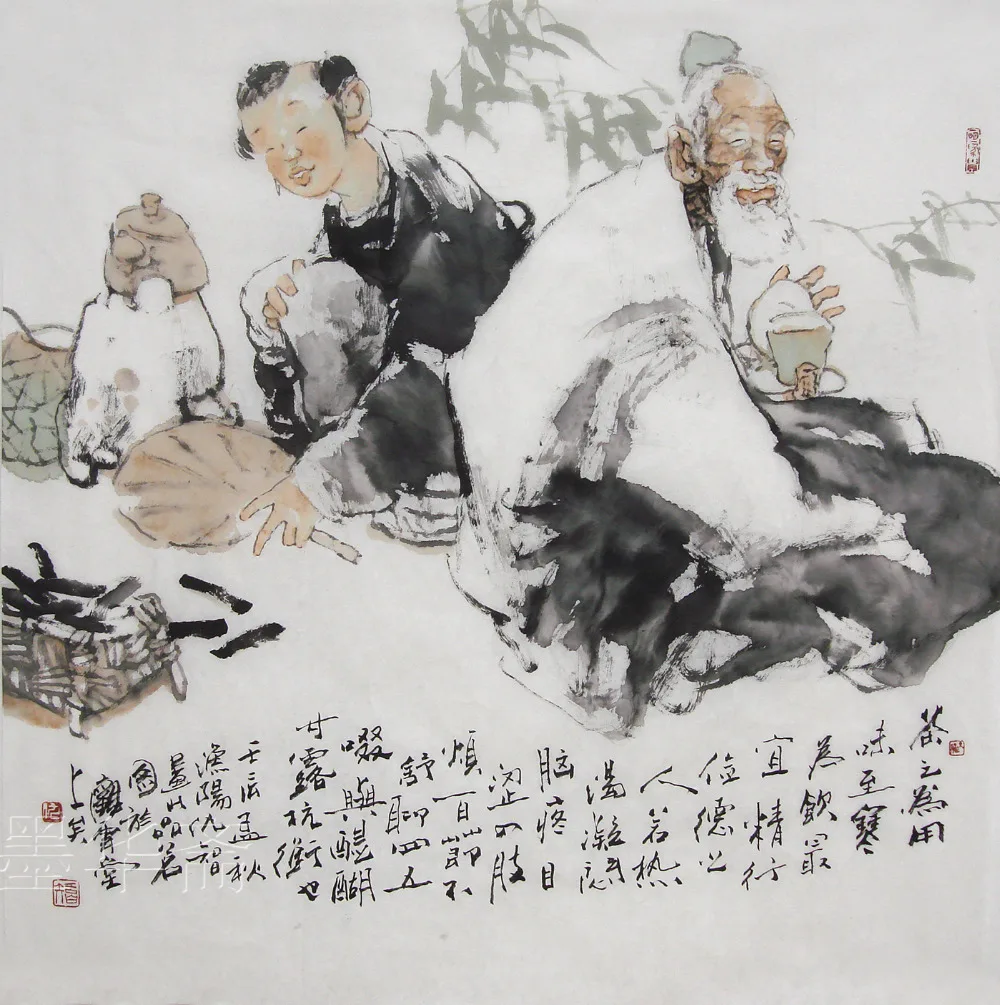 茶之為用
味至寒
為飲最
宜精行
儉德之
人若熱
渴凝悶
脑疼目
澁四肢
煩百節不
舒聊四五
啜與醍醐
甘露抗衡也
壬辰孟秋
漁陽仇智
畫此品茗
圖於
堂
上